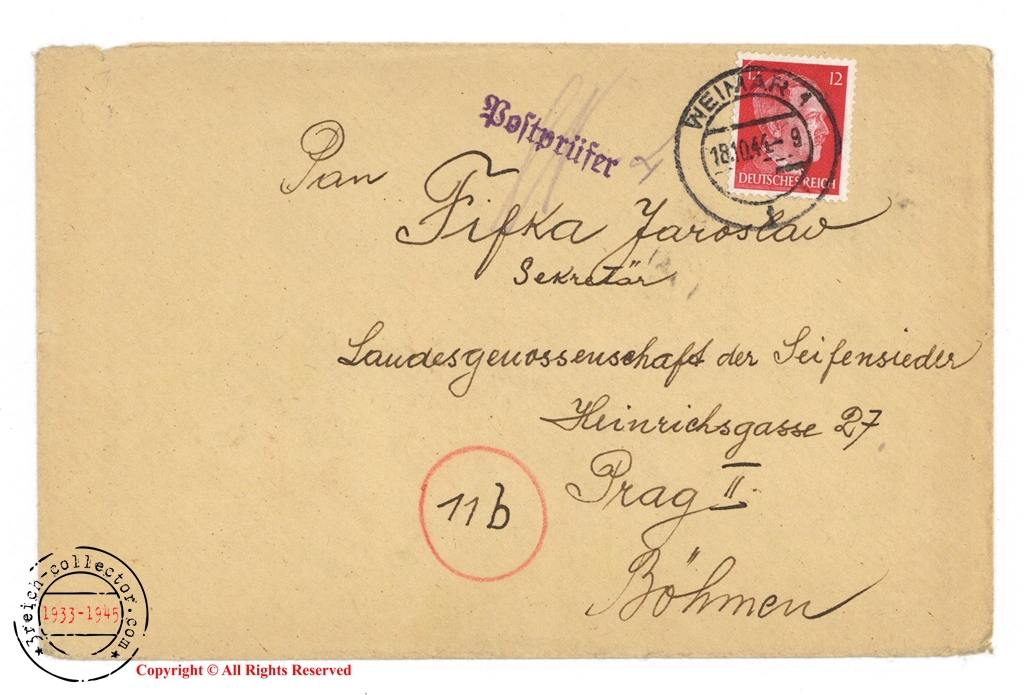 12 12
DEUTSCHES REICH
WEIMAR 1
18.10.44- 9
Postprüfer
Pan
Fifka Jaroslav
Sekretär
Landesgenossenschaft der Seifensieder
Heinrichsgasse 27
Prag II.
Böhmen
11b
*3reich-collector.com*
1933-1945
Copyright © All Rights Reserved